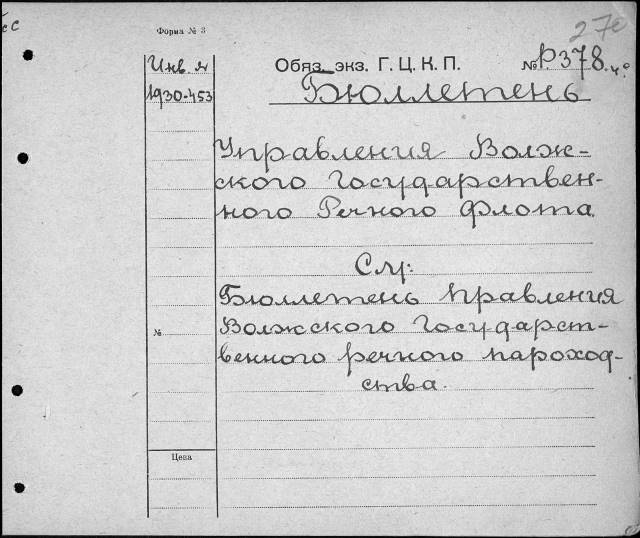 Форма № 3
27е
Инв. №
1930-453
Обяз. экз. Г. Ц. К. П.
№ Р378.
Бюллетень
Управления Волж-
ского Государствен-
ного Речного Флота.
См:
Бюллетень Правления
Волжского Государст-
венного речного пароход-
ства.
№
Цена